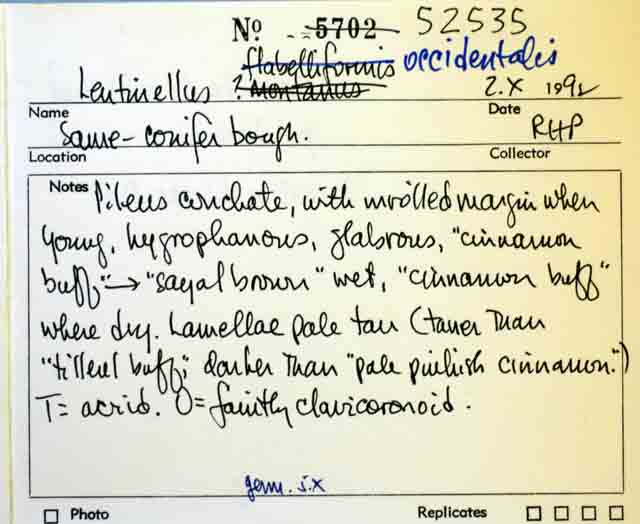 Nº 5702 52535
flabelliformis occidentalis
Lentinellus ? montanus 2.X 1992
Name Date
Same - conifer bough. RHP
Location Collector
Notes Pileus conchate, with inrolled margin when
young, hygrophanous, glabrous, "cinnamon
buff" → "sayal brown" wet, "cinnamon buff"
where dry. Lamellae pale tan (taner than
"tilleul buff;" darker than "pale pinkish cinnamon.")
T= acrid. O= faintly clavicoronoid.
germ. 5.X
Photo Replicates